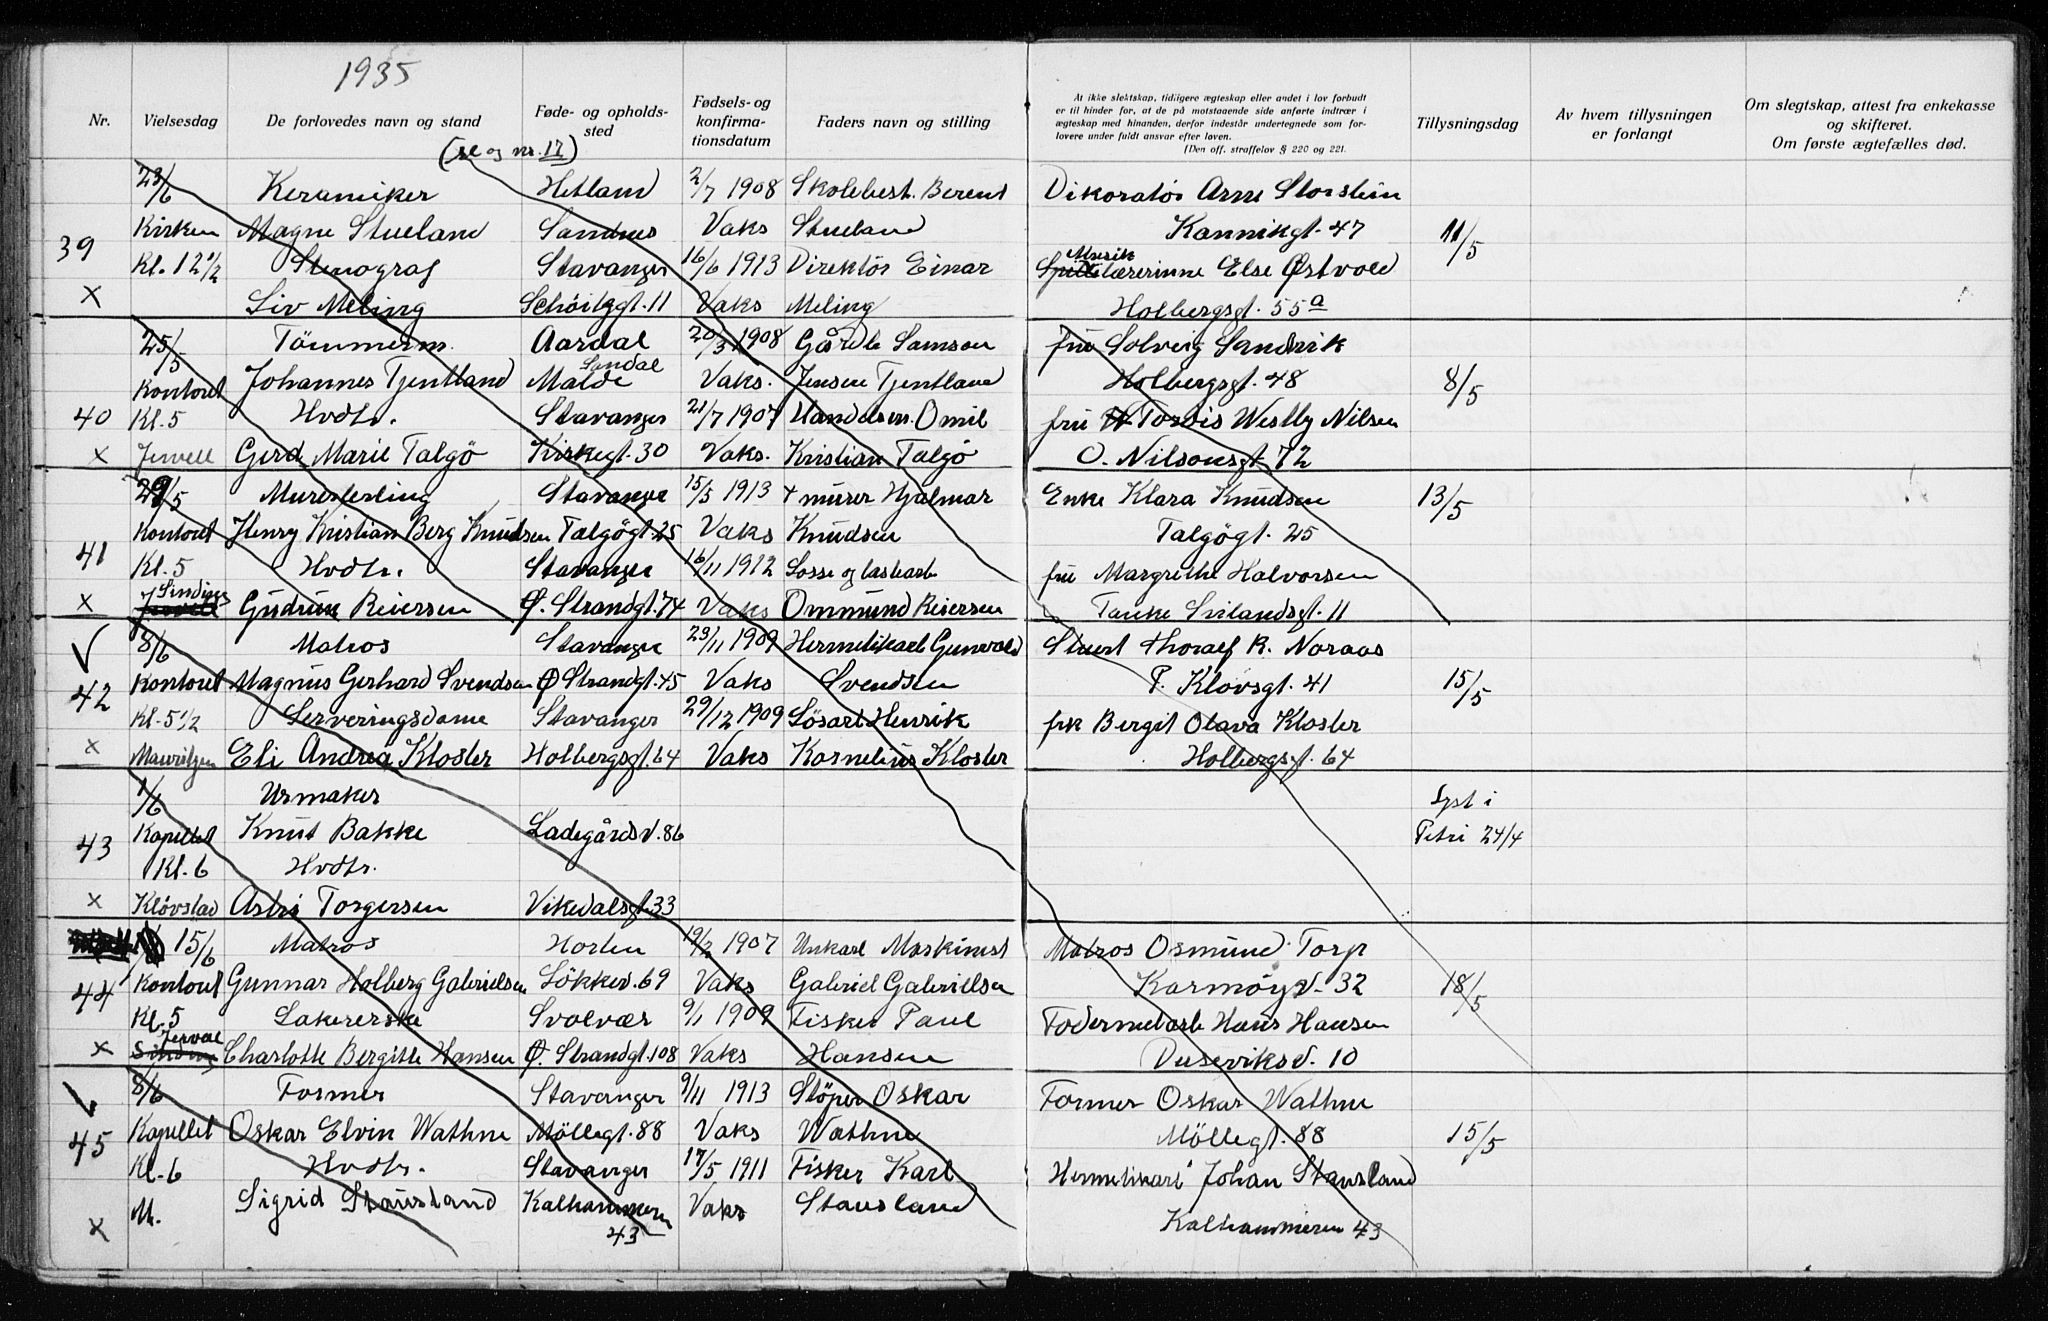 1935
Nr. Vielsesdag De forlovedes navn og stand Føde- og opholds-sted Fødsels- og konfirma-tionsdatum Faders navn og stilling
At ikke slektskap, tidligere ægteskap eller andet i lov forbudt
er til hinder for, at de på motstaaende side anførte indtrær i
ægteskap med hinanden, derfor indestår undertegnede som for-
lovere under fuldt ansvar efter loven.
(Den off. straffelov § 220 og 221.
Tillysningsdag Av hvem tillysningen er forlangt Om slegtskap, attest fra enkekasse og skifteret. Om første ægtefælles død.
(se og nr. 17)
23/6 Keramiker Hetland 2/7 1908 Skolebest. Berent Dikoratør Arne Storstein
39 Kirken Magne Stueland Sandnes Vaks Stueland Kannikgt. 47 11/5
Kl. 12 1/2 Stenograf Stavanger 16/6 1913 Direktør Einar Musiklærerinne Else Østvold
x Liv Meling Schöitzgt. 11 Vaks Meling Holbergsgt. 55a
25/5 Tömmerm. Aardal 20/3 1908 Gårdb. Samson fru Solveig Sandvik
Kontoret Johannes Tjentland Malde Sandal Vaks. Jensen Tjentland Holbergsgt. 48 8/5
40 Kl. 5 Hvdtr. Stavanger 21/7 1907 Handelsm. Omil fru Tordis Westby Nilsen
x Jervell Gerd Marie Talgö Kirkegt. 30 Vaks. Kristian Talgö O. Nilsonsgt 72
29/5 Murerlerling Stavanger 15/5 1913 + murer Hjalmar Enke Klara Knudsen 13/5
Kontoret Henry Kristian Berg Knudsen Talgögt. 25 Vaks Knudsen Talgögt. 25
41 Kl. 5 Hvdtr. Stavanger 16/11 1912 Losse og lastearb fru Margrethe Halvorsen
x Sinding Gudrun Reiersen Ø. Strandgt. 74 Vaks Ommund Reiersen Tanke Svilandsgt. 11
8/6 Matros Stavanger 23/11 1909 Hermetikarb Gunvald Stuert Thoralf R. Noraas
42 Kontoret Magnus Gerhard Svendsen Ø Strandgt. 45 Vaks Svendsen P. Klovsgt. 41 15/5
Kl. 5 1/2 Serveringsdame Stavanger 29/12 1909 Lösarb Henrik frk Bergit Olava Kloster
x Mauritzen Eli Andrea Kloster Holbergsgt. 64 Vaks Kornelius Kloster Holbergsgt. 64
1/6 Urmaker Lyst i
43 Kapellet Knut Bakke Ladegårdsv. 86 Petri 24/4
Kl. 6 Hvdtr.
x Klövstad Astri Torgersen Vikedalsgt. 33
15/6 Matros Horten 19/2 1907 Unkarl Maskinist Matros Osmund Torp
44 Kontoret Gunnar Holberg Gabrielsen Lökkev. 69 Vaks Gabriel Gabrielsen Karmöyv. 32 18/5
Kl. 5 Lakererske Svolvær 9/1 1909 Fisker Paul Fodermelarb Hans Hansen
x Jervell Charlotte Bergitte Hansen Ø. Strandgt. 108 Vaks Hansen Duseviksv. 10
8/6 Former Stavanger 9/11 1913 Støper Oskar Former Oskar Wathne
45 Kapellet Oskar Elvin Wathne Möllegt. 88 Vaks Wathne Möllegt. 88 15/5
Kl. 6 Hvdtr. Stavanger 17/5 1911 Fisker Karl Hermetikarb Johan Stausland
x M. Sigrid Stausland Kalhammeren 43 Vaks Stausland Kalhammeren 43